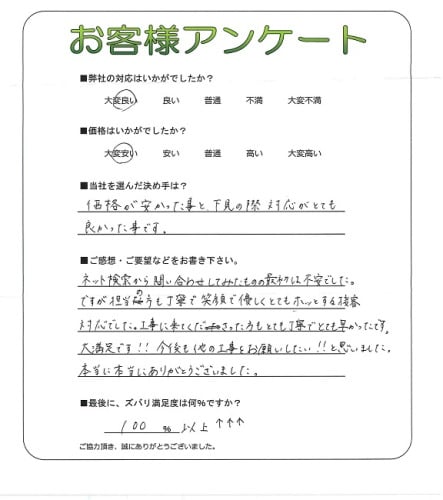 お客様アンケート
■弊社の対応はいかがでしたか?
大変良い 良い 普通 不満 大変不満
■価格はいかがでしたか?
大変安い 安い 普通 高い 大変高い
■当社を選んだ決め手は?
価格が安かった事と、下見の際 対応がとても
良かった事です。
■ご感想・ご要望などをお書き下さい。
ネット検索から問い合わせしてみたものの最初は不安でした。
ですが担当の方も丁寧で笑顔で優しくとてもホッとする接客
対応でした。工事に来てくださった方もとても丁寧でとても早かったです。
大満足です!!今後も他の工事をお願いしたい!!と思いました。
本当に本当にありがとうございました。
■最後に、ズバリ満足度は何%ですか?
100 % 以上 ↑↑↑
ご協力頂き、誠にありがとうございました。